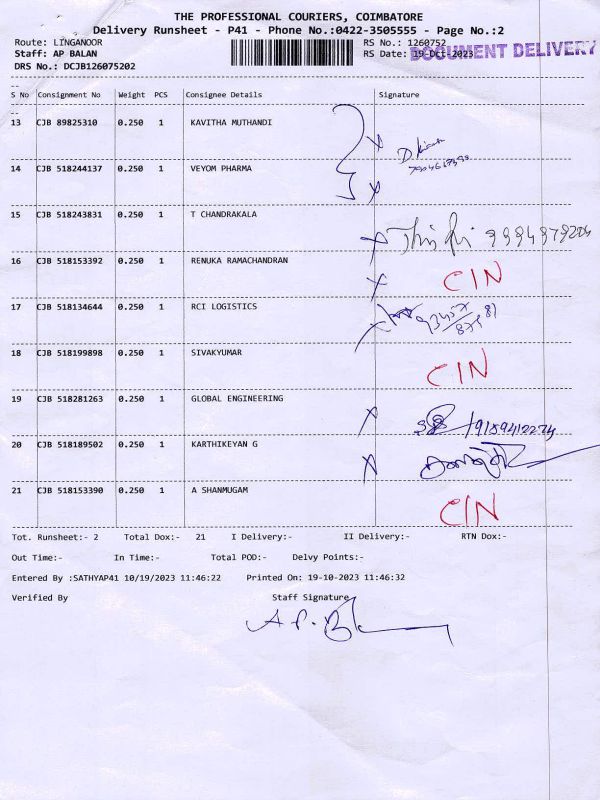 THE PROFESSIONAL COURIERS, COIMBATORE
Delivery Runsheet - P41 - Phone No.:0422-3505555 - Page No.:2
Route: LINGANOOR RS No.: 1260752
Staff: AP BALAN RS Date: 19-Oct-2023 DOCUMENT DELIVERY
DRS No.: DCJB126075202
S No Consignment No Weight PCS Consignee Details Signature
13 CJB 89825310 0.250 1 KAVITHA MUTHANDI
14 CJB 518244137 0.250 1 VEYOM PHARMA
15 CJB 518243831 0.250 1 T CHANDRAKALA
16 CJB 518153392 0.250 1 RENUKA RAMACHANDRAN CIN
17 CJB 518134644 0.250 1 RCI LOGISTICS
18 CJB 518199898 0.250 1 SIVAKYUMAR CIN
19 CJB 518281263 0.250 1 GLOBAL ENGINEERING
20 CJB 518189502 0.250 1 KARTHIKEYAN G
21 CJB 518153390 0.250 1 A SHANMUGAM CIN
Tot. Runsheet:- 2 Total Dox:- 21 I Delivery:- II Delivery:- RTN Dox:-
Out Time:- In Time:- Total POD:- Delvy Points:-
Entered By :SATHYAP41 10/19/2023 11:46:22 Printed On: 19-10-2023 11:46:32
Verified By Staff Signature